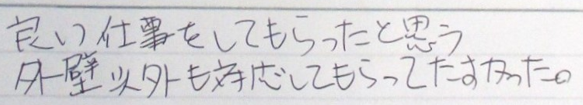 良い仕事をしてもらったと思う
外壁以外も対応してもらってたすかった。